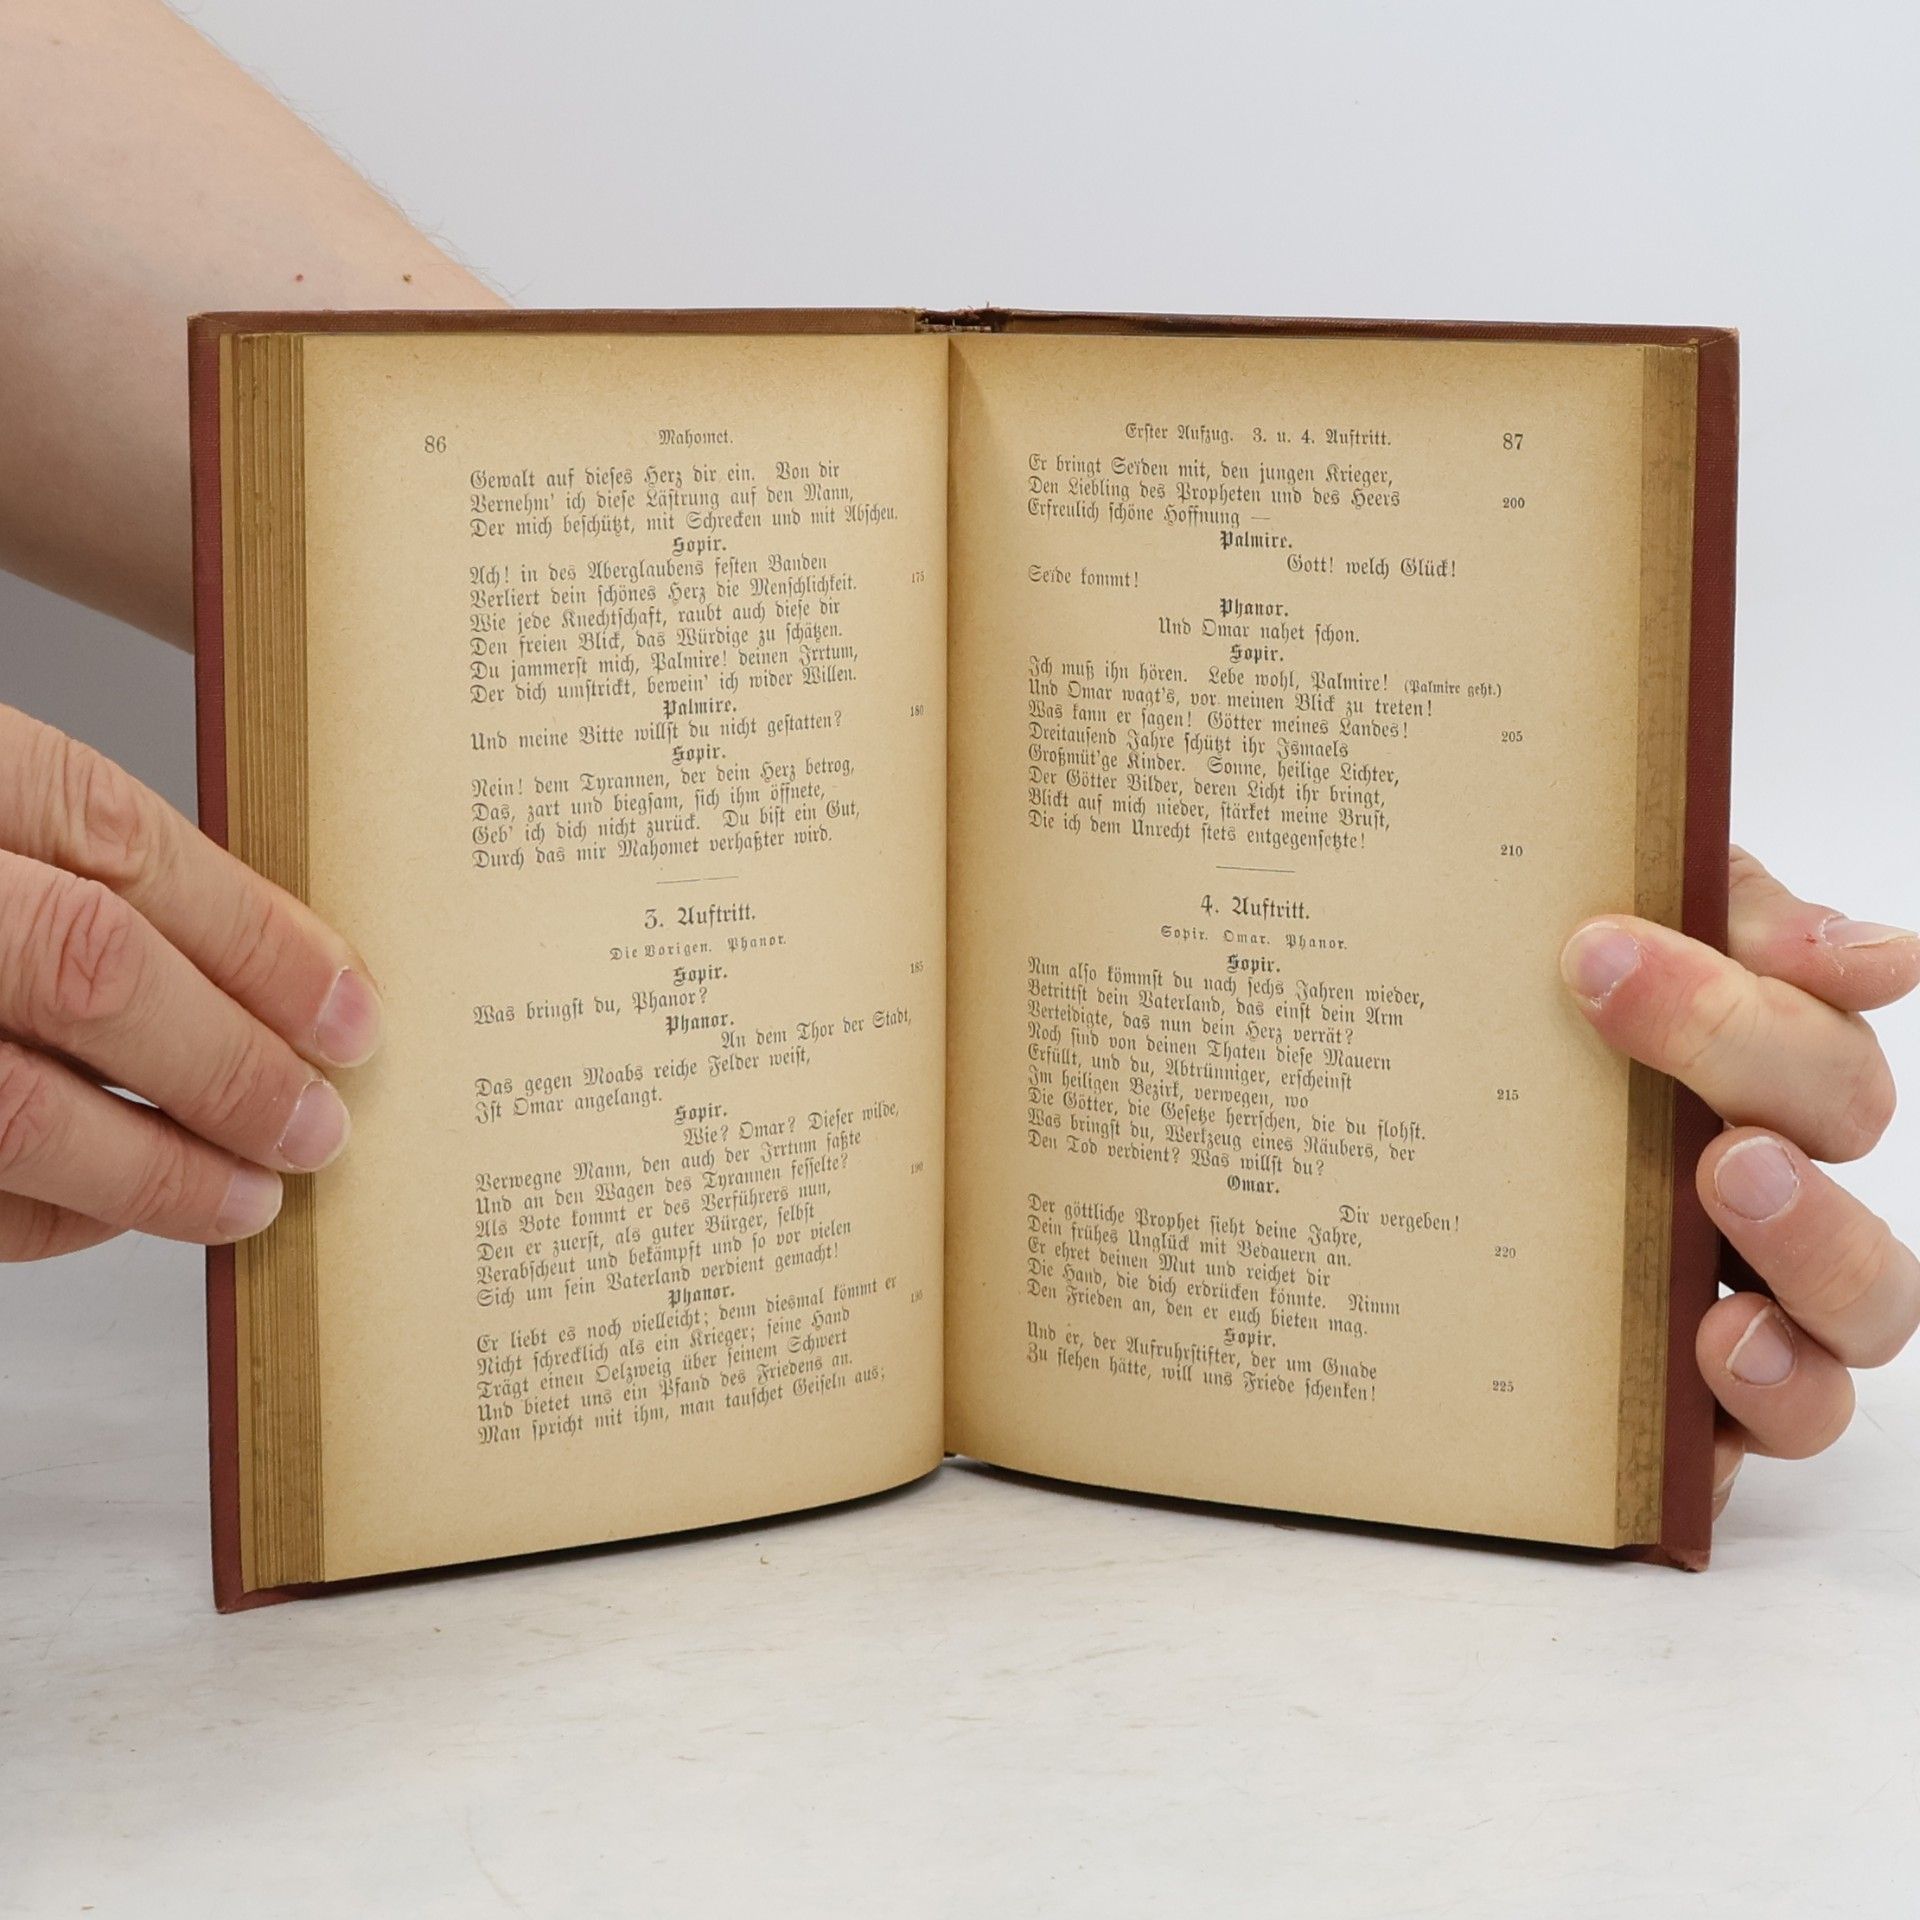 86
Mahomet.
Gewalt auf dieſes Herz dir ein. Von dir
Vernehm' ich dieſe Läſtrung auf den Mann,
Der mich beſchützt, mit Schrecken und mit Abſcheu.
Sopir.
Ach! in des Aberglaubens feſten Banden
Verliert dein ſchönes Herz die Menſchlichkeit. 175
Wie jede Knechtſchaft, raubt auch dieſe dir
Den freien Blick, das Würdige zu ſchätzen.
Du jammerſt mich, Palmire! deinen Irrtum,
Der dich umſtrickt, bewein' ich wider Willen.
Palmire.
Und meine Bitte willſt du nicht geſtatten? 180
Sopir.
Nein! dem Tyrannen, der dein Herz betrog,
Das, zart und biegſam, ſich ihm öffnete,
Geb' ich dich nicht zurück. Du biſt ein Gut,
Durch das mir Mahomet verhaßter wird.
3. Auftritt.
Die Vorigen. Phanor.
Sopir.
Was bringſt du, Phanor? 185
Phanor.
An dem Thor der Stadt,
Das gegen Moabs reiche Felder weiſt,
Iſt Omar angelangt.
Sopir.
Wie? Omar? Dieſer wilde,
Verwegne Mann, den auch der Irrtum faßte
Und an den Wagen des Tyrannen feſſelte?
Als Bote kommt er des Verführers nun, 190
Den er zuerſt, als guter Bürger, ſelbſt
Verabſcheut und bekämpft und ſo vor vielen
Sich um ſein Vaterland verdient gemacht!
Phanor.
Er liebt es noch vielleicht; denn diesmal kömmt er
Nicht ſchrecklich als ein Krieger; ſeine Hand 195
Trägt einen Oelzweig über ſeinem Schwert
Und bietet uns ein Pfand des Friedens an.
Man ſpricht mit ihm, man tauſchet Geiſeln aus;
Erſter Aufzug. 3. u. 4. Auftritt.
87
Er bringt Seïden mit, den jungen Krieger,
Den Liebling des Propheten und des Heers 200
Erfreulich ſchöne Hoffnung —
Palmire.
Gott! welch Glück!
Seïde kommt!
Phanor.
Und Omar nahet ſchon.
Sopir.
Ich muß ihn hören. Lebe wohl, Palmire! (Palmire geht.)
Und Omar wagt's, vor meinen Blick zu treten!
Was kann er ſagen! Götter meines Landes! 205
Dreitauſend Jahre ſchützt ihr Ismaels
Großmüt'ge Kinder. Sonne, heilige Lichter,
Der Götter Bilder, deren Licht ihr bringt,
Blickt auf mich nieder, ſtärket meine Bruſt,
Die ich dem Unrecht ſtets entgegenſetzte! 210
4. Auftritt.
Sopir. Omar. Phanor.
Sopir.
Nun alſo kömmſt du nach ſechs Jahren wieder,
Betrittſt dein Vaterland, das einſt dein Arm
Verteidigte, das nun dein Herz verrät?
Noch ſind von deinen Thaten dieſe Mauern
Erfüllt, und du, Abtrünniger, erſcheinſt 215
Im heiligen Bezirk, verwegen, wo
Die Götter, die Geſetze herrſchen, die du flohſt.
Was bringſt du, Werkzeug eines Räubers, der
Den Tod verdient? Was willſt du?
Omar.
Dir vergeben!
Der göttliche Prophet ſieht deine Jahre, 220
Dein frühes Unglück mit Bedauern an.
Er ehret deinen Mut und reichet dir
Die Hand, die dich erdrücken könnte. Nimm
Den Frieden an, den er euch bieten mag.
Sopir.
Und er, der Aufruhrſtifter, der um Gnade 225
Zu flehen hätte, will uns Friede ſchenken!